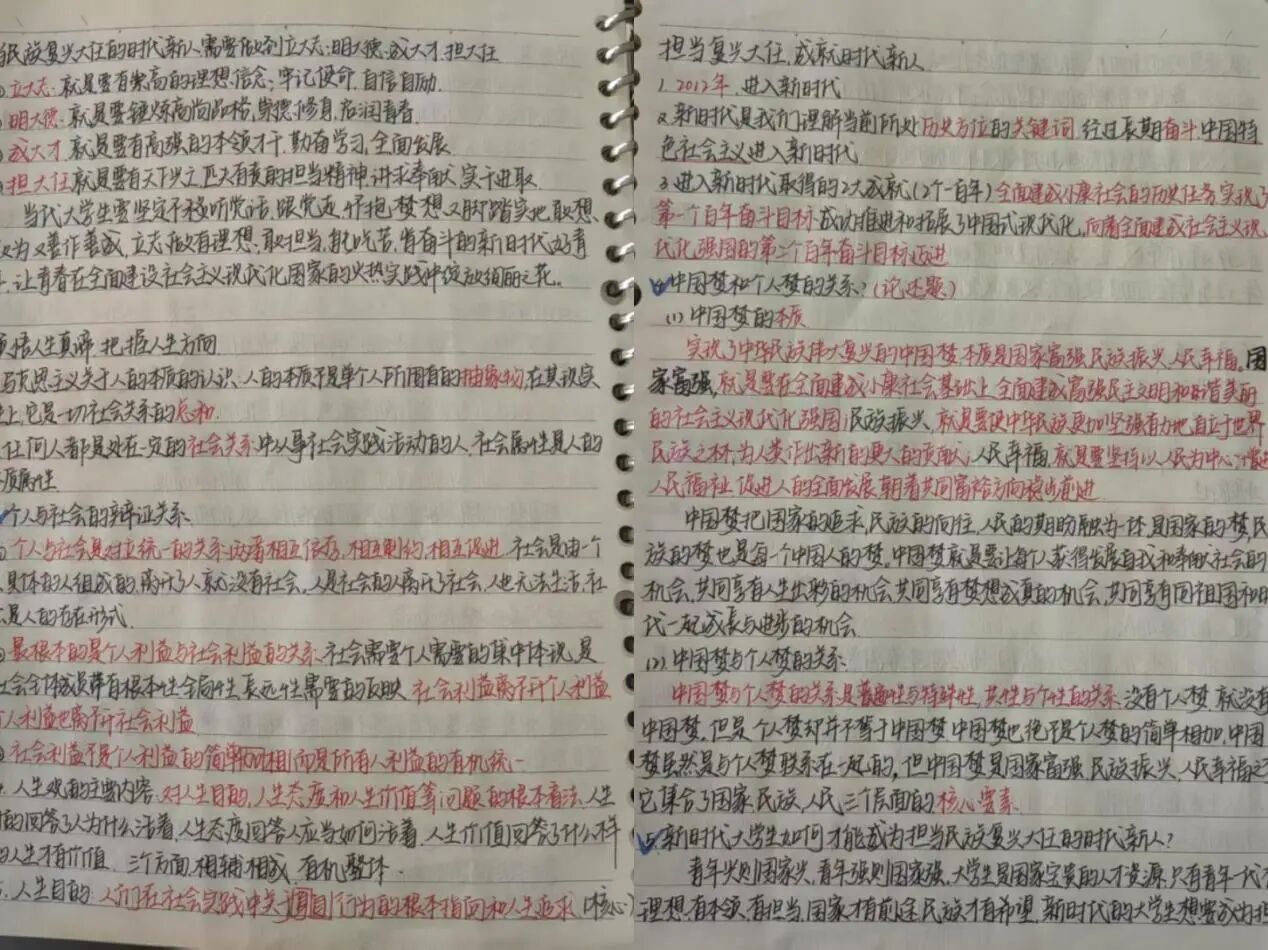 民族复兴大任的时代新人需要做到立大志,明大德,成大才,担大任
立大志:就是要有崇高的理想信念,牢记使命,自信自励.
明大德:就是要锤炼高尚品格,崇德修身,启润青春.
成大才,就是要有高强的本领才干,勤奋学习,全面发展
担大任就是要有天下兴亡匹夫有责的担当精神,讲求奉献,实干进取
当代大学生要坚定不移听党话,跟党走,怀抱梦想又脚踏实地,敢想
敢为又善作善成,立志做有理想、敢担当、能吃苦、肯奋斗的新时代好青
年,让青春在全面建设社会主义现代化国家的火热实践中绽放绚丽之花.
领悟人生真谛 把握人生方向
马克思主义关于人的本质的认识.人的本质不是单个人所固有的抽象物,在其现实
性上,它是一切社会关系的总和.
任何人都是处在一定的社会关系中从事社会实践活动的人.社会属性是人的
本质属性
个人与社会的辩证关系.
个人与社会是对立统一的关系,两者相互依存,相互制约,相互促进.社会是由一个
具体的人组成的,离开了人就没有社会.人是社会的人离开了社会,人也无法生活,社
是人的存在形式.
最根本的是个人利益与社会利益的关系.社会需要个人需要的集中体现,是
社会全体成员带有根本性全局性长远性需要的反映.社会利益离不开个人利益
个人利益也离不开社会利益.
社会利益不是个人利益的简单相加而是所有人利益的有机统一
人生观的主要内容:对人生目的,人生态度和人生价值等问题的根本看法.人生
目的回答了人为什么活着,人生态度回答人应当如何活着,人生价值回答了什么样
的人生才有价值. 三个方面,相辅相成,有机整体.
人生目的:人们在社会实践中关于自身行为的根本指向和人生追求.(核心)
担当复兴大任,成就时代新人
1. 2012年,进入新时代
2.新时代是我们理解当前所处历史方位的关键词,经过长期奋斗,中国特
色社会主义进入新时代
3.进入新时代取得的2大成就(2个一百年)全面建成小康社会的历史任务,实现了
第一个百年奋斗目标,成功推进和拓展了中国式现代化,向着全面建成社会主义现
代化强国的第二个百年奋斗目标迈进
4.中国梦和个人梦的关系?(论述题)
(1) 中国梦的本质
实现了中华民族伟大复兴的中国梦,本质是国家富强,民族振兴,人民幸福。国
家富强,就是要在全面建成小康社会基础上,全面建成富强民主文明和谐美丽
的社会主义现代化强国;民族振兴,就是要使中华民族更加坚强有力地自立于世界
民族之林,为人类作出新的更大的贡献;人民幸福,就是要坚持以人民为中心,增进
人民福祉,促进人的全面发展,朝着共同富裕方向稳步前进.
中国梦把国家的追求,民族的向往,人民的期盼融为一体,是国家的梦,民
族的梦也是每一个中国人的梦.中国梦就是要让每个人获得发展自我和奉献社会的
机会,共同享有人生出彩的机会,共同享有梦想成真的机会,共同享有同祖国和时
代一起成长与进步的机会.
(2) 中国梦与个人梦的关系.
中国梦与个人梦的关系是普遍性与特殊性,共性与个性的关系.没有个人梦,就没有
中国梦.但是个人梦却并不等于中国梦,中国梦也绝不是个人梦的简单相加,中国
梦虽然是与个人梦联系在一起的,但中国梦是国家富强、民族振兴、人民幸福之
它集合了国家,民族,人民三个层面的核心要素.
5.新时代大学生如何才能成为担当民族复兴大任的时代新人?
青年兴则国家兴,青年强则国家强,大学生是国家宝贵的人才资源,只有青年一代有
理想,有本领,有担当,国家才有前途,民族才有希望.新时代的大学生想要成为担